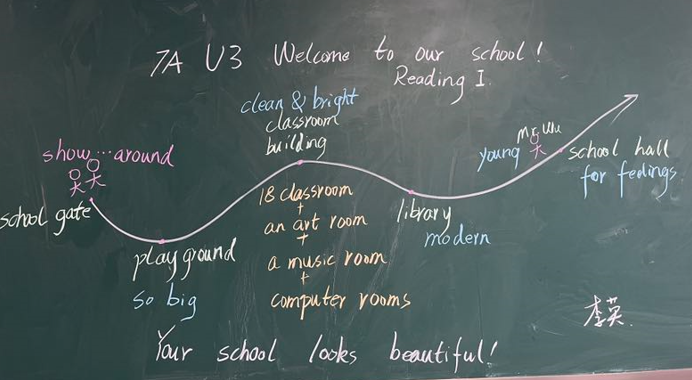 7A U3 Welcome to our school!
Reading I.
clean & bright
classroom
building
show...around
school gate
playground
so big
18 classroom
+
an art room
+
a music room
+
computer rooms
library
modern
young
Mr. Wu
school hall
for feelings
李英
Your school looks beautiful!